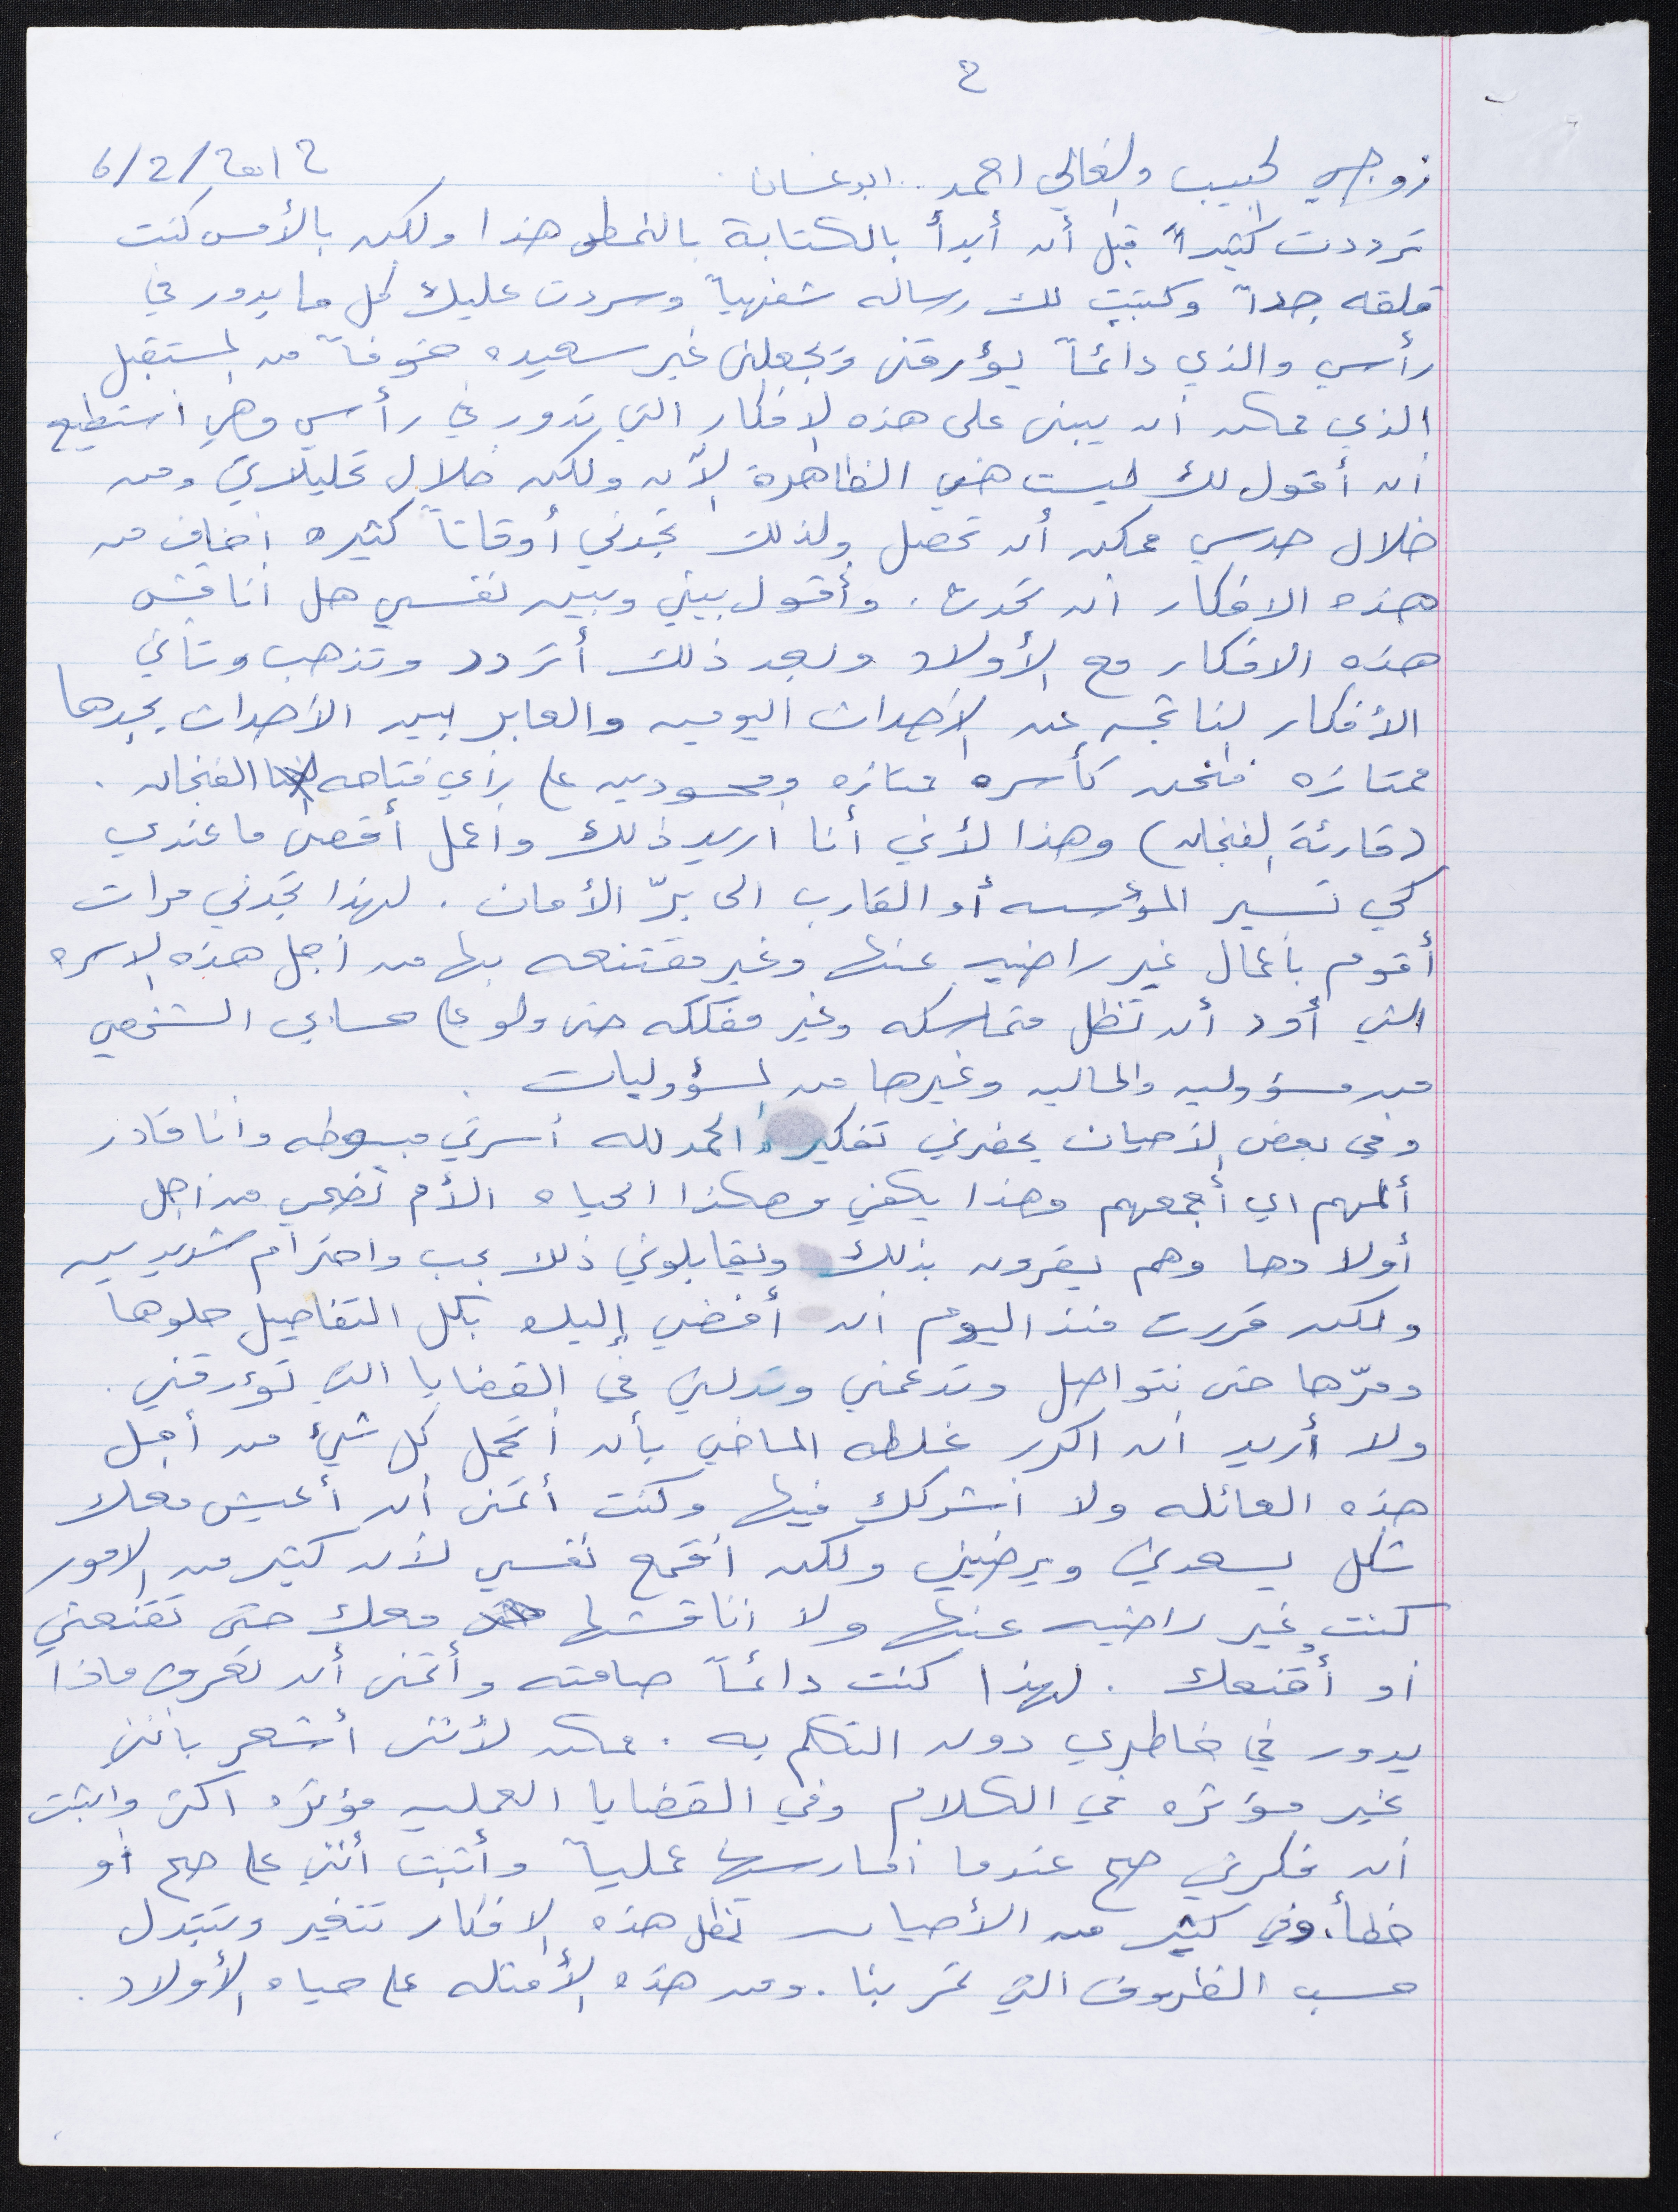 ٢
زوجي الحبيب والغالي احمد .. ابو غسان
6/2/٢٠١٢
ترددت كثيراً قبل أن أبدأ بالكتابة بالنمط هذا ولكن بالأمس كنت
قلقه جداً وكتبت لك رساله شفهياً وسردت عليك كل ما يدور في
رأسي والذي دائماً يؤرقني ويجعلني غير سعيده خوفاً من المستقبل
الذي ممكن ان يبنى على هذه الافكار التي تدور في رأسي وهي استطيع
ان أقول لك ليست هي الظاهرة الآن ولكن خلال تحليلاتي ومن
خلال حدسي ممكن أن تحصل ولذلك تجدني أوقاتاً كثيره اخاف من
هذه الافكار ان تحدث . وأقول بيني وبين نفسي هل اناقش
هذه الافكار مع الأولاد وبعد ذلك أتردد وتذهب وتأتي
الأفكار الناتجه عن الأحداث اليوميه والعابر بين الأحداث يجدها
ممتازه فنحن كأسره ممتازه ومحسودين على رأي فتاحه الفنجان .
(قارئة الفنجان) وهذا لأني أنا اريد ذلك واعمل أقصى ما عندي
كي تسير المؤسسه أو القارب الى برّ الأمان . لهذا تجدني مرات
أقوم بأعمال غير راضيه عنها وغير مقتنعه بها من اجل هذه الاسره
التي أود أن تظل متماسكه وغير مفككه حتى ولو على حسابي الشخصي
من مسؤوليه والماليه وغيرها من المسؤوليات .
وفي بعض الأحيان يحضرني تفكير والحمد لله أسرتي مبسوطه وانا قادر
ألمهم اي أجمعهم وهذا يكفي وهكذا الحياه الأم تضحي من اجل
أولادها وهم يقرون بذلك ويقابلوني ذلك بحب واحترام شديدين
ولكن قررت منذ اليوم ان أفضي إليك بكل التفاصيل حلوها
ومرّها حتى نتواصل وتدعمني وتدلني في القضايا التي تؤرقني .
ولا أريد ان اكرر غلطه الماضي بأن أتحمل كل شيء من أجل
هذه العائله ولا اشركك فيها وكنت أتمنى أن أعيش معك
شكل يسعدني ويرضيني ولكن اقمع نفسي لأن كثير من الامور
كنت غير راضيه عنها ولا اناقشها معك حتى تقنعني
او أقنعك . لهذا كنت دائماً صامته وأتمنى أن تعرف ماذا
يدور في خاطري دون التكلم به . ممكن لأنني أشعر بأنني
غير مؤثره في الكلام وفي القضايا العمليه مؤثره اكثر واثبت
ان فكرتي صح عندما امارسها عملياً وأثبت أنني على صح أو
خطأ. وفي كثير من الأحيان تظل هذه الافكار تتغير وتتبدل
حسب الظروف التي تمر بنا . ومن هذه الأمثله على حياه الأولاد .